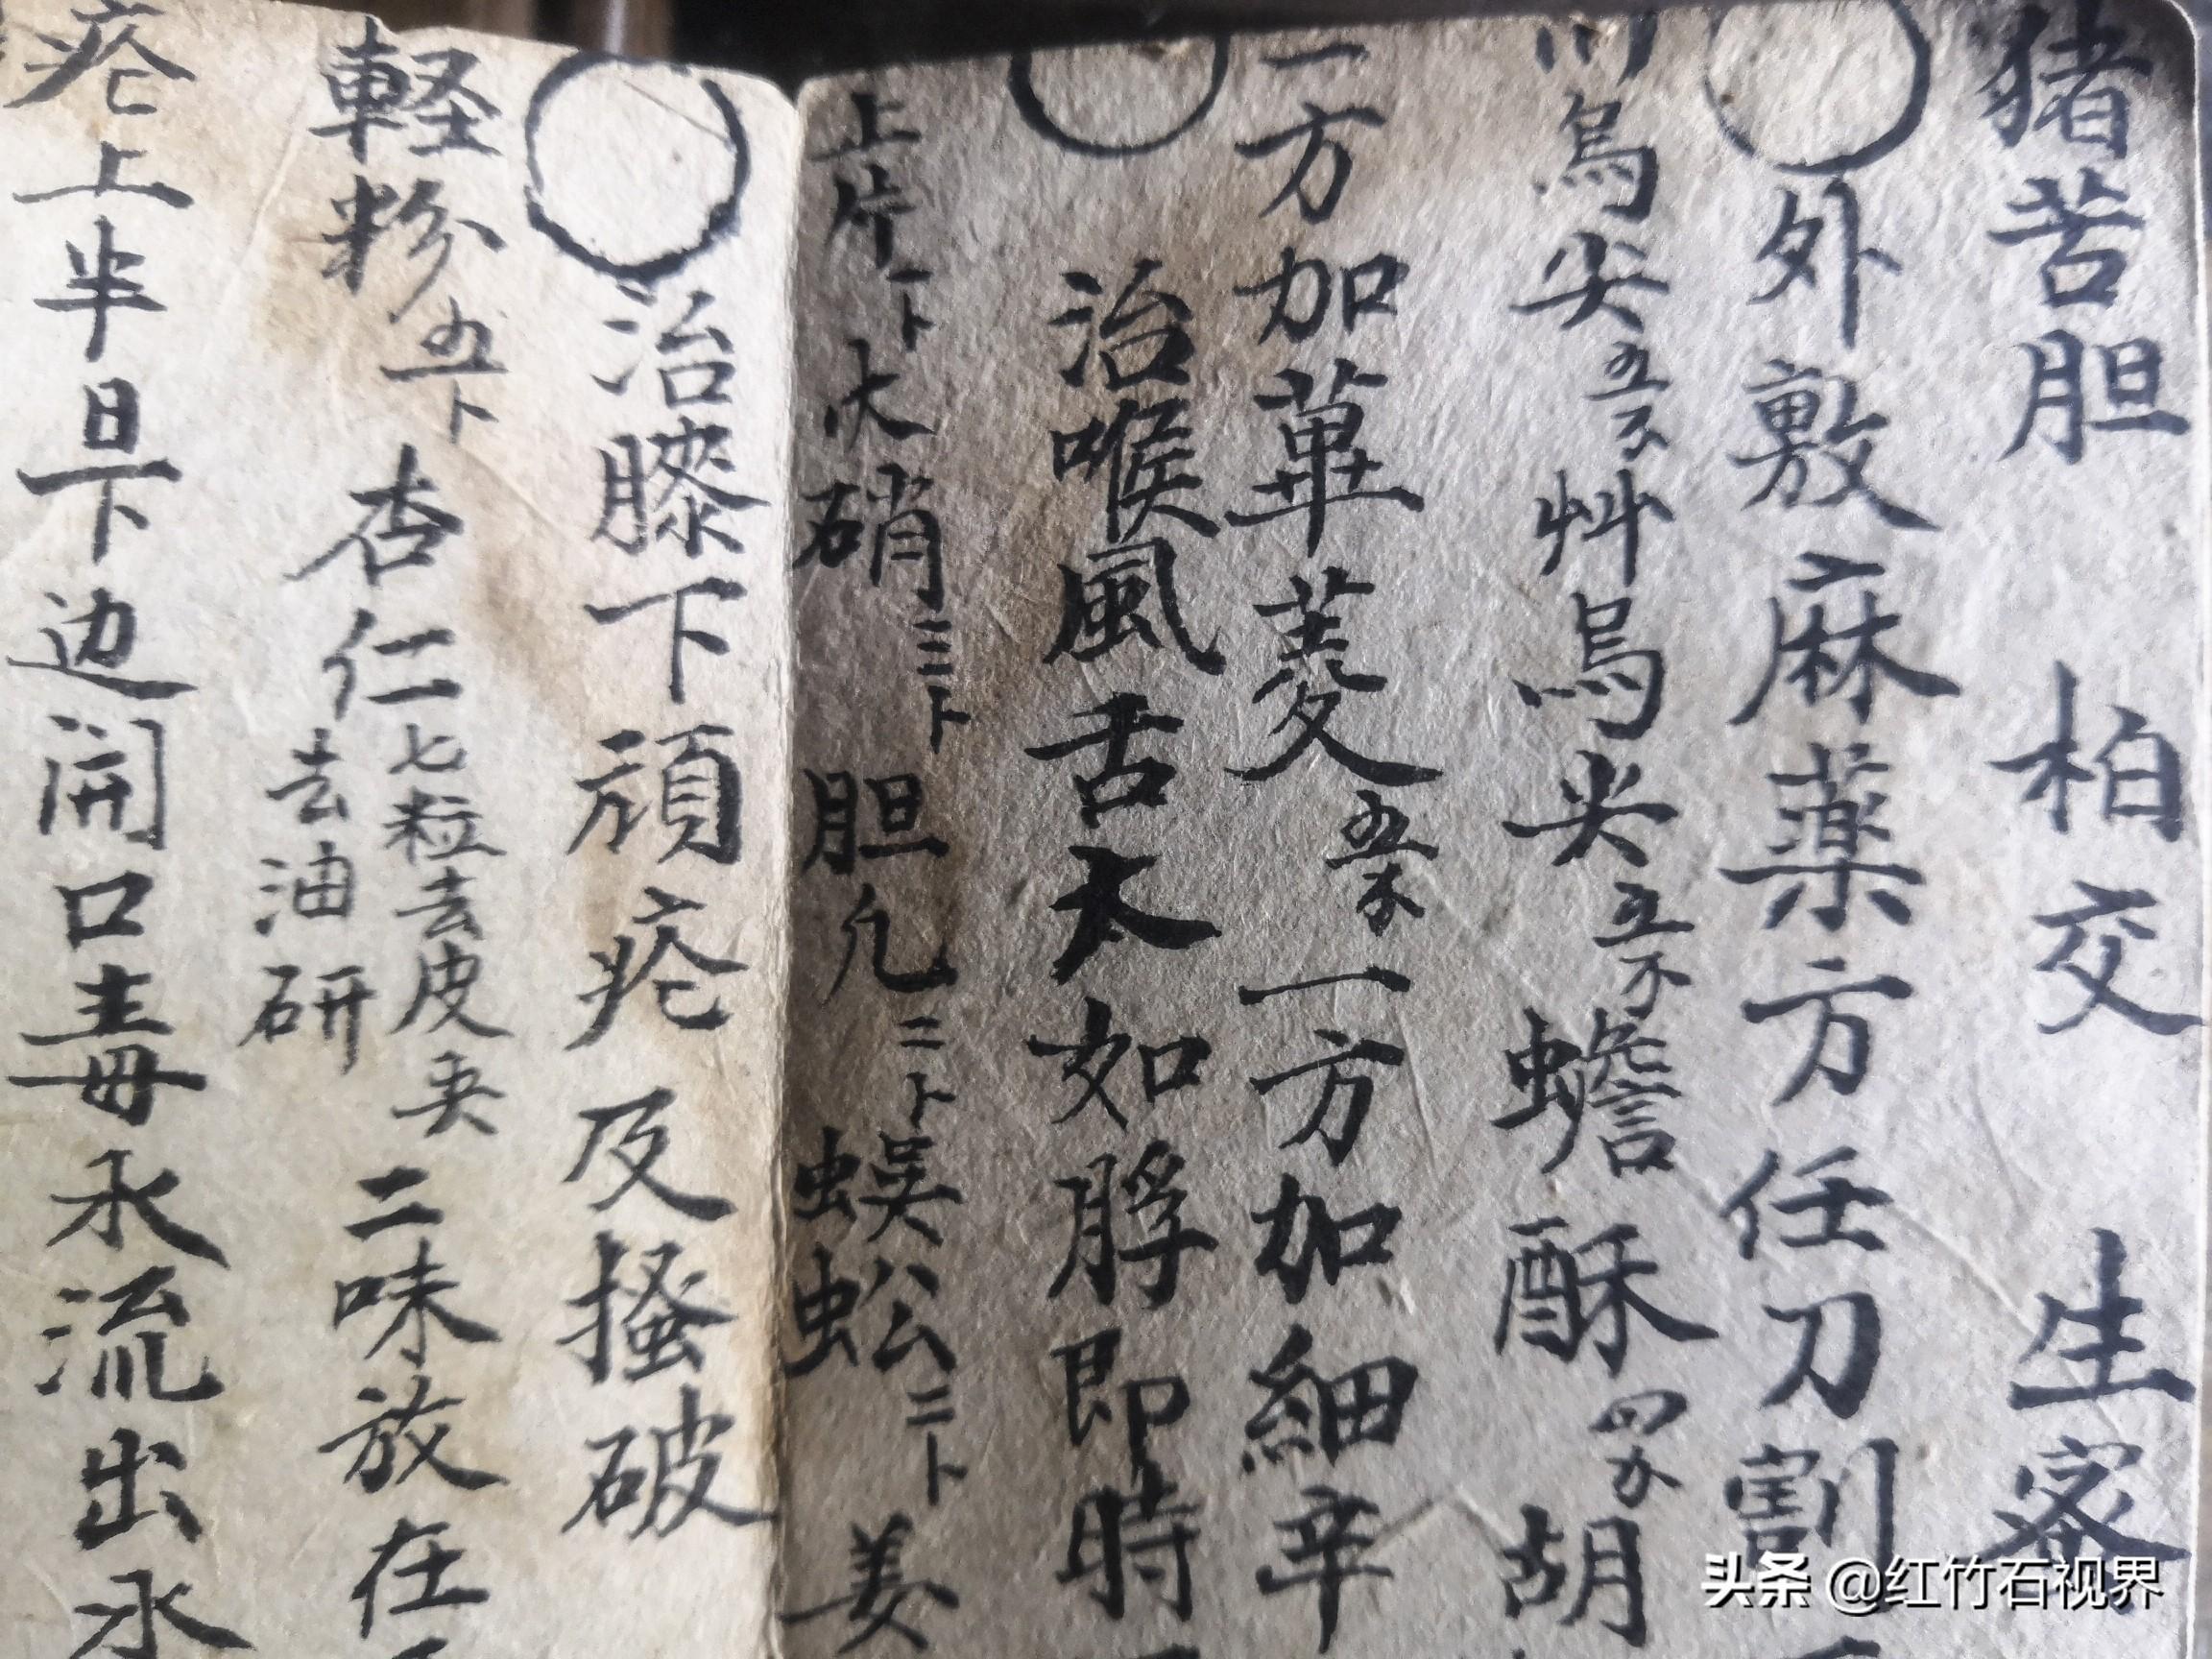 猪苦胆 柏交 生蜜
外敷麻药方任刀割
川烏尖五分 艸烏尖五分 蟾酥四分 胡
一方加蓽菱五分一方加細辛
治喉風舌太如脬即時
上片一卜 大硝三二卜 胆凡二卜 蜈蚣二卜 姜
治膝下頑疮及搔破
軽粉五卜 杏仁七粒去皮尖去油研 二味放在
疮上半日下边開口毒水流出水
头条 @红竹石视界